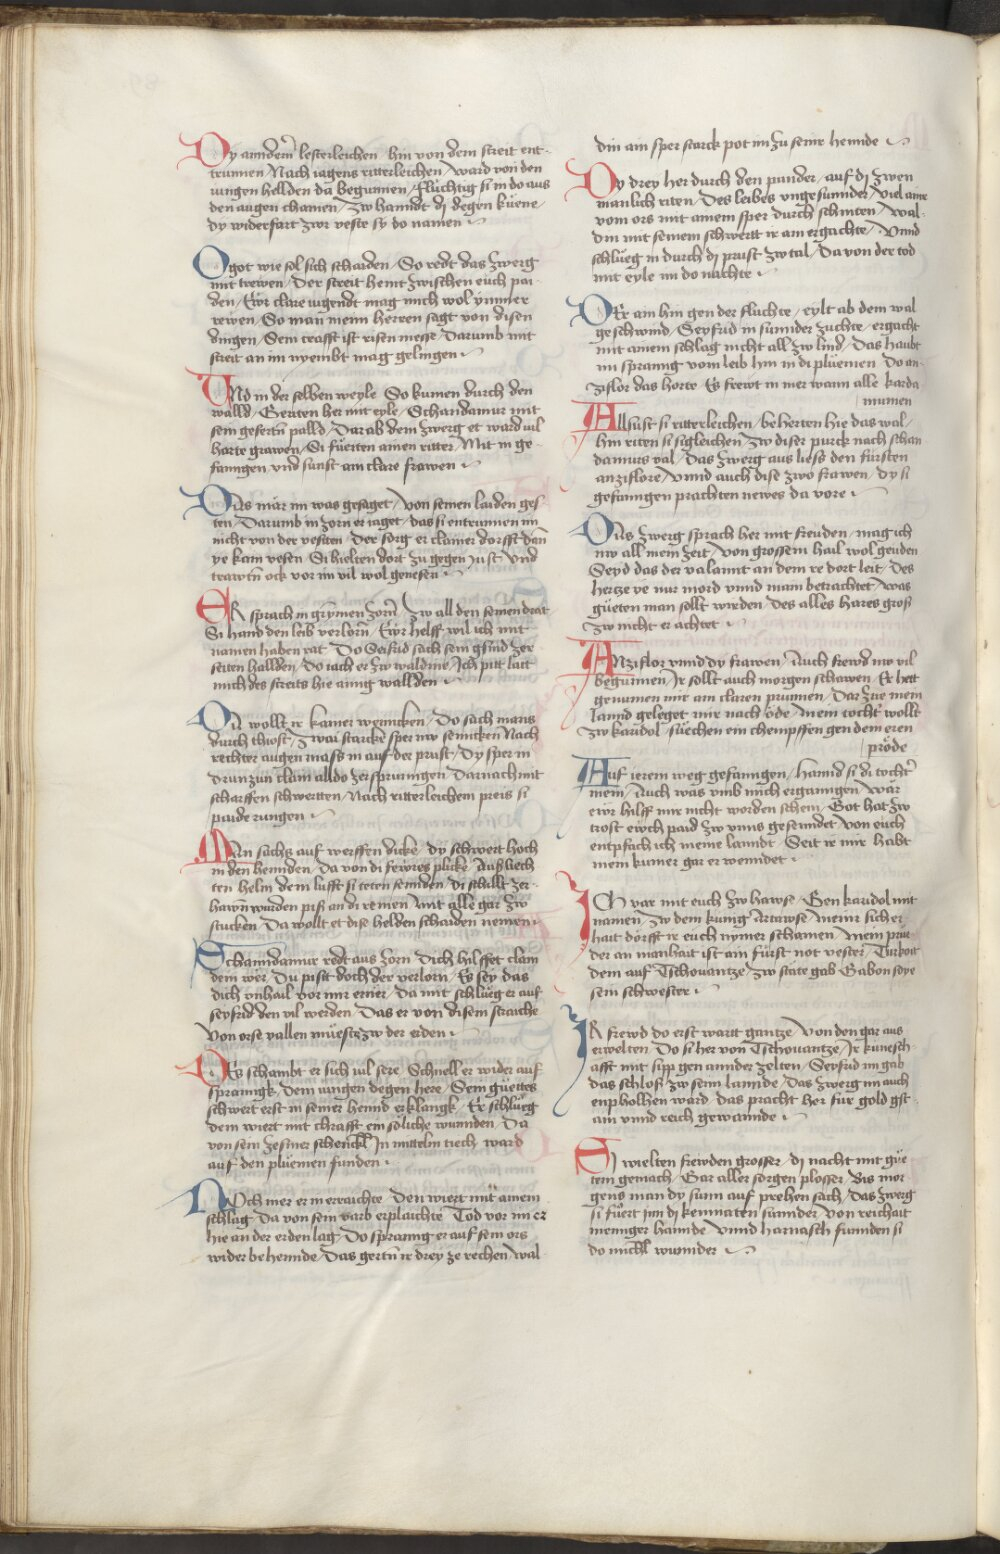 Dy anndern lesterleichen / hin von dem streit ent-
trunnen / Nach iagens ritterleichen / ward von den
iungen hellden da begunnen / fluchtig si in do aus
den augen chamen / Zw hanndt dj degen küene /
dy widerfart zwr veste sy do namen
O got wie sol sich schaiden / So redt das zwerg
mit trewen / Der streit heint zwischen euch pai-
den / Ewr clare iugendt mag mich wol ymmer
rewen / So man meim herren sagt von disen
dingen / Sein crafft ist risen messe / Darumb mit
streit an im nyembt mag gelingen
Und in der selben weyle / So kumen durch den
walld / Geriten her mit eyle / Schandamur mit
sein gefertn palld / Dar ab dem zwerg et ward vil
harte grawen / Si fuerten ainen ritter / Mit in ge-
fanngen vnd sunst ain clare frawen
Dis mär im was gesaget / von seinen laiden ges-
ten / Darumb in zorn er iaget / das si entrunnen im
nicht von der vesten / Der sorg er clainer dorfft dan
ye kain vesen / Si hielten dort zu gegen just / vnd
trawtn ock vor im vil wol genesen
Er sprach in grymen zorn / zw all den seinen drat
Si hand den leib verlorn / Ewr helff wil ich mit
namen haben rat / Do Seifrid sach sein gsind zer-
seiten hallden / Do iach er zw waldine / Ich pitt latt
mich des streits hie ainig wallden
Du wollt ir kainer wenncken / Do sach mans
durch thiost / Zwai starcke sper nw senncken / Nach
rechter augen mass in auf der prust / Dy sper in
drunzun clain alldo zersprunngen / Darnach mit
scharffen schwertten / Nach ritterleichem preis si
paide rungen
Man sachs auf werffen dicke / dy schwert hoch
in den hennden / Da von di fewres plicke / Aus liech
ten helm dem lufft si teten sennden / Di schillt zer-
hawn wurden pis an di remen / Mit alle gar zw
stucken / Da wollt et dise helden schaiden nemen
Schanndamur redt aus zorn / Dich hilffet clain
dein wer / Du pist doch der verlorn / Es sey das
dich vnhail vor mir erner / Da mit schlueg er auf
seyfrid den vil werden / Das er von disem straiche
Von orse vallen muest zw der erden
Des schambt er sich vil sere / Schnell er wider auf
spranngk / Dem iungen degen here / Sein guettes
schwert erst in seiner hennd erklangk / Er schlueg
dem wiert mit chrafft ein soliche wunnden / Da
von sein zesmer schenckl / In mitteln tiech ward
auf den plüemen funden
Noch mer er in erraichte / Den wiert mit ainem
schlag / Da von sein varb erplaichte / Tod vor im er
hie an der erden lag / Do sprannng er auf sein ors
wider behennde / Das gertn ir drey ze rechen / Wal
din ain sper starck pot im zu seinr hennde
Dy drey her durch den punder / auf dj zwen
manlich riten / Des leibes vngesunnder / Viel ainr
vom ors mit ainem sper durch schniten / Wal-
din mit seinem schwertt ir ain ergachte / Vnnd
schlueg in durch dj prust zw tal / Da von der tod
mit eyle im do nachte
Der ain hin gen der fluchte / eylt ab dem wal
geschwind / Seyfrid in sunnder zuchte / ergacht
mit ainem schlag nicht all zw lind / Das haubt
im sprannng vom leib hin in di pluemen / Do an-
ziflor das horte / Es frewt in mer wann alle karda
mumen
Allsust si ritterleichen / beherten hie das wal /
Hin riten si sigleichen / Zw diser purck nach schan
damurs val / Das zwerg aus lies den fürsten
anziflore / Vnnd auch dise zwo frawen / Dy si
gefanngen prachten newes da vore
Dits zwerg sprach her mit freuden / mag ich
nw all mein zeit / Von grossem hail wol geuden
Seyd das der valannt an dem re dort leit / Des
hertze ye nur mord vnnd main betrachtet / was
güeten man sollt wirden / Des alles hares gros
zw nicht er achtet
Anziflor vnnd dy frawen / Auch frewd nw vil
begunnen / Ir sollt auch morgen schawen / Er hett
genumen mir ain claren prunnen / Dar zue mein
lannd geleget mir nach öde / Mein tocht wollt
zw karidol / Suechen ein chempffen gen dem eren
pröde
Auf ierem weg gefanngen / Hannd si di tocht
mein / Auch was vmb mich ergangen / wär
ewr hilff mir nicht worden schein / Got hat zw
trost ewch paid zw vnns gesenndet / Von euch
entpfach ich meine lanndt / Seit ir mir habt
mein kumer gar erwenndet
Ich var mit euch zw hawse / Gen karidol mit
namen / Zw dem kunig Artawse / Meinr sicher
hait dorfft ir euch nymer schamen / Mein prue
der an manhait ist ain fürst not vester / Turkoit
dem auf Tschouantze / Zw stäte gab Gabon soye
sein schwester
Ir frewd do erst wartt gantze / Von den gar aus
erwelten / Do si her von Tschouantze / Ir kunesch-
afft mit sipp gen annder zelten / Seyfrid im gab
das schlos zw seim lannde / Das zwerg im auch
enpholhen ward / das pracht her für gold gst-
ain vnnd reich gewannde
Si wielten frewden grosser / dj nacht mit güe
tem gemach / Gar aller sorgen plosser / Bis mor
gens man dy sunn auf prehen sach / Das zwerg
si fuert inn dj kemnaten sunnder / von reichait
menniger hannde / Vnnd harnasch funnden si
do michl wunnder